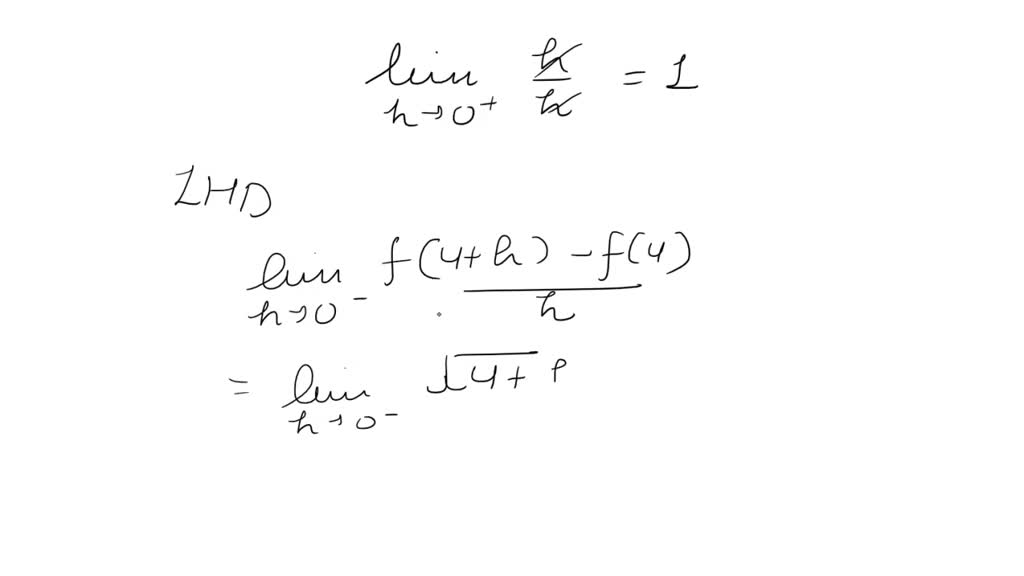 lim h→0⁺ h/h = 1
LHD
lim h→0⁻ f(4+h) - f(4) / h
= lim h→0⁻ √4+